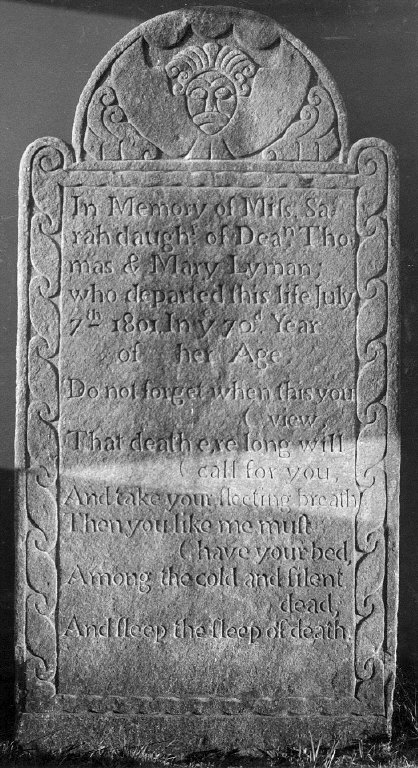 In Memory of Miſs, Sa-
rah daughᵗ. of Deaⁿ. Tho
mas & Mary Lyman;
who departed this life July
7ᵗʰ 1801, In yᵉ 70ᵈ. Year
of her Age.
Do not forget when this you
( view
That death ere long will
( call for you,
And take your fleeting breath,
Then you like me muſt
( have your bed,
Among the cold and ſilent
dead,
And ſleep the ſleep of death.